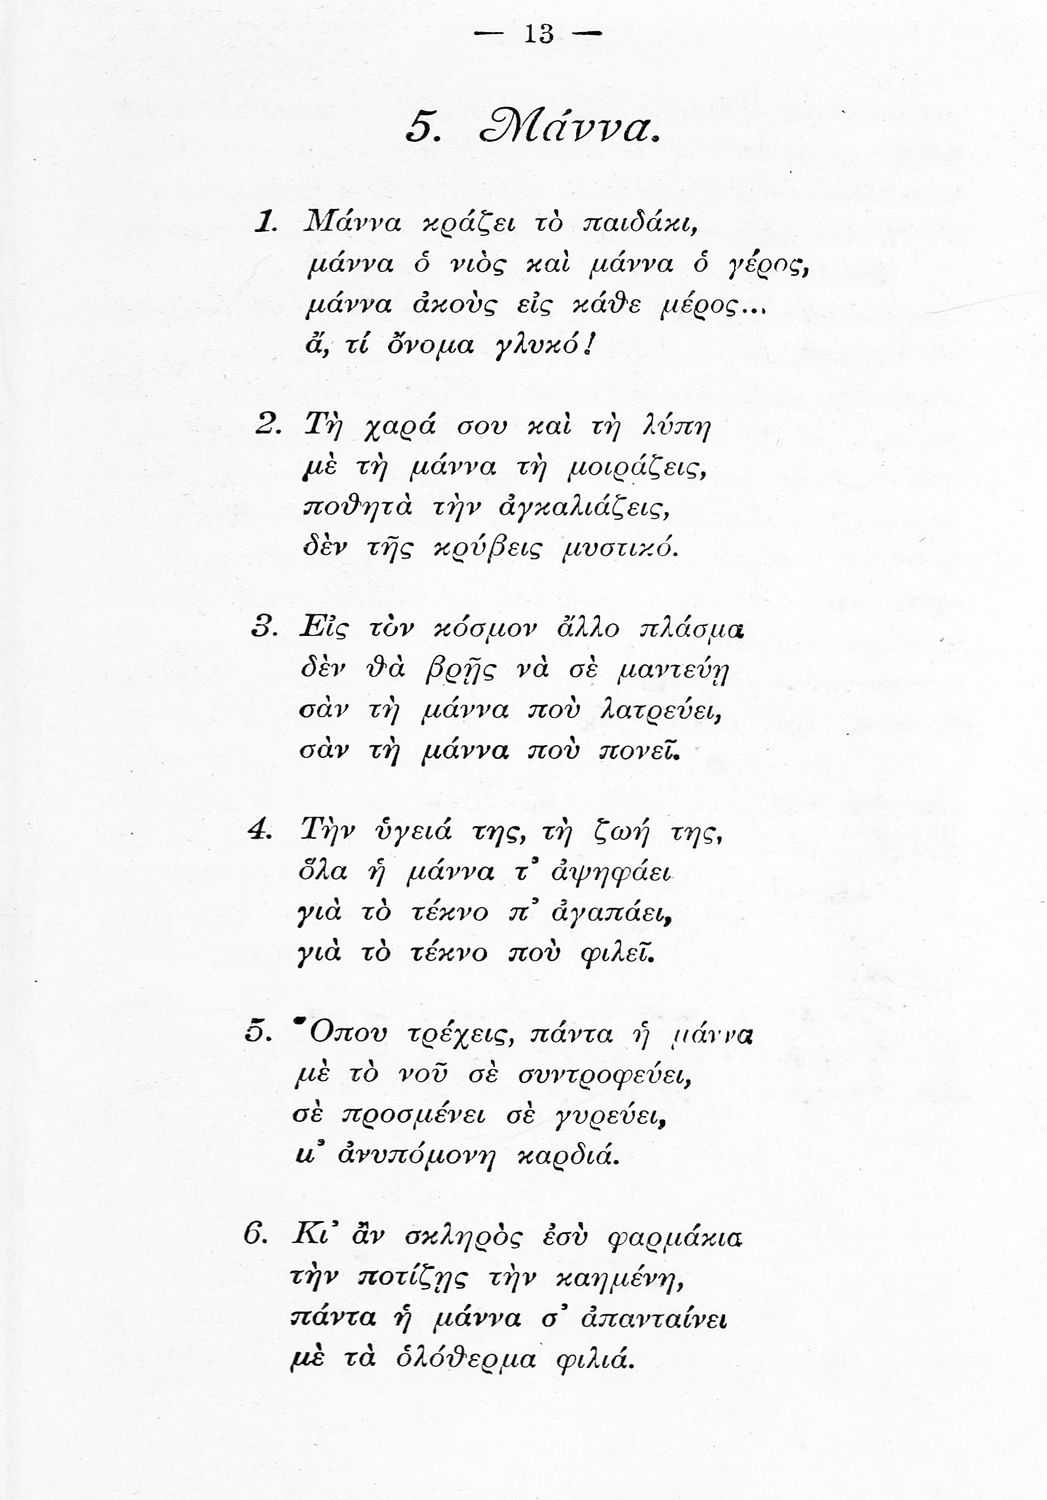 — 13 —
5. Μάννα.
1. Μάννα κράζει τὸ παιδάκι,
μάννα ὁ νιὸς καὶ μάννα ὁ γέρος,
μάννα ἀκοὺς εἰς κάθε μέρος...
ἄ, τί ὄνομα γλυκό!
2. Τὴ χαρά σου καὶ τὴ λύπη
μὲ τὴ μάννα τὴ μοιράζεις,
ποθητὰ τὴν ἀγκαλιάζεις,
δὲν τῆς κρύβεις μυστικό.
3. Εἰς τὸν κόσμον ἄλλο πλάσμα
δὲν θὰ βρῇς νὰ σὲ μαντεύῃ
σὰν τὴ μάννα ποὺ λατρεύει,
σὰν τὴ μάννα ποὺ πονεῖ.
4. Τὴν ὑγειά της, τὴ ζωή της,
ὅλα ἡ μάννα τ' ἀψηφάει
γιὰ τὸ τέκνο π' ἀγαπάει,
γιὰ τὸ τέκνο ποὺ φιλεῖ.
5. Ὅπου τρέχεις, πάντα ἡ μάννα
μὲ τὸ νοῦ σὲ συντροφεύει,
σὲ προσμένει σὲ γυρεύει,
μ' ἀνυπόμονη καρδιά.
6. Κι' ἂν σκληρὸς ἐσὺ φαρμάκια
τὴν ποτίζῃς τὴν καημένη,
πάντα ἡ μάννα σ' ἀπανταίνει
μὲ τὰ ὁλόθερμα φιλιά.